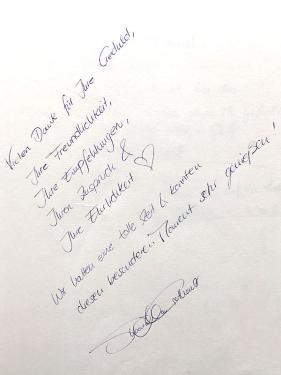 Vielen Dank für Ihre Geduld,
Ihre Freundlichkeit,
Ihre Empfehlungen,
Ihren Zuspruch &
Ihre Ehrlichkeit ♡
Wir hatten eine tolle Zeit & konnten
diesen besonderen Moment sehr genießen!